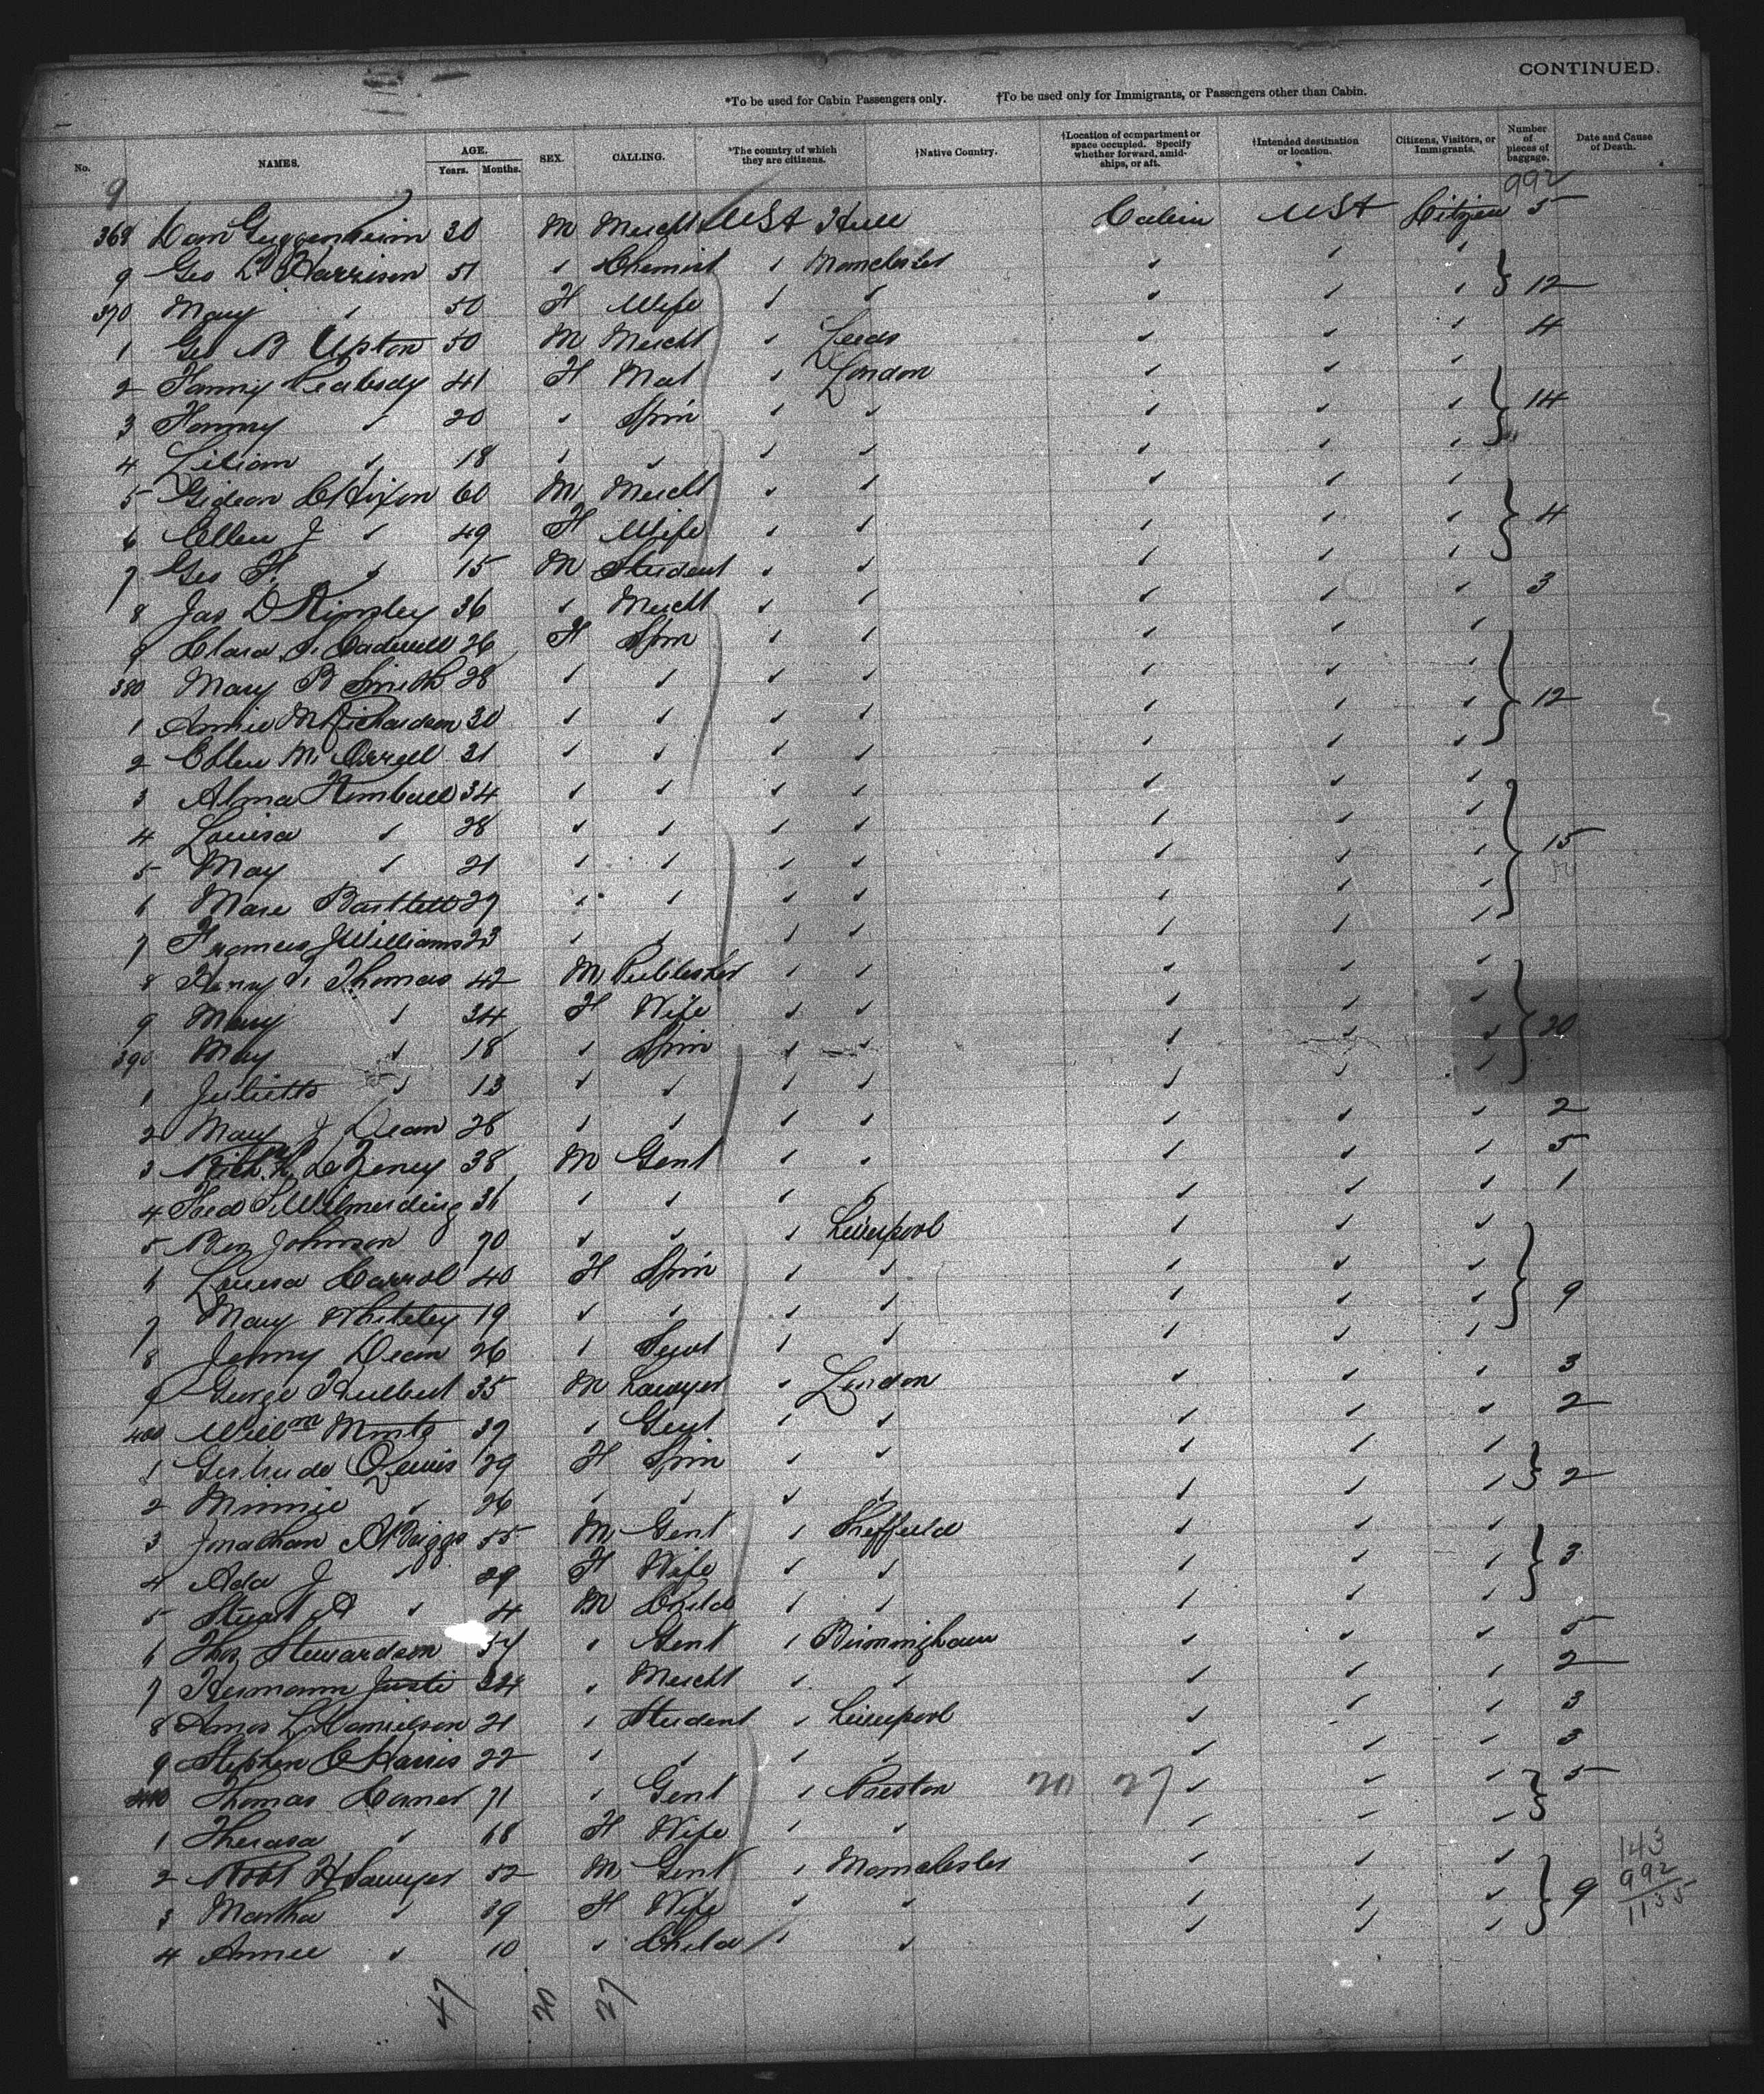 CONTINUED.
*To be used for Cabin Passengers only. †To be used only for Immigrants, or Passengers other than Cabin.
No. NAMES. AGE. Years. Months. SEX. CALLING. *The country of which they are citizens. †Native Country. †Location of compartment or space occupied. Specify whether forward, amidships, or aft. †Intended destination or location. Citizens, Visitors, or Immigrants. Number of pieces of baggage. Date and Cause of Death.
9 992
368 Dan Guggenheim 30 M Mercht USA Hull Cabin USA Citizen 5
9 Geo L Harrison 51 ✓ Chemist ✓ Manchester ✓ ✓ ✓
370 Mary ✓ 50 F Wife ✓ ✓ ✓ ✓ ✓ } 12
1 Geo B Upton 50 M Mercht ✓ Leeds ✓ ✓ ✓ 4
2 Fanny Peabody 41 F Mat ✓ London ✓ ✓ ✓
3 Fanny ✓ 20 ✓ Spin ✓ ✓ ✓ ✓ ✓ } 14
4 Lilian ✓ 18 ✓ ✓ ✓ ✓ ✓ ✓ ✓
5 Gideon C Hixon 60 M Mercht ✓ ✓ ✓ ✓ ✓
6 Ellen J ✓ 49 F Wife ✓ ✓ ✓ ✓ ✓ } 4
7 Geo F. ✓ 15 M Student ✓ ✓ ✓ ✓ ✓
8 Jas D 36 ✓ Mercht ✓ ✓ ✓ ✓ ✓ 3
9 Clara 26 F Spin ✓ ✓ ✓ ✓ ✓
380 Mary B Smith 28 ✓ ✓ ✓ ✓ ✓ ✓ ✓
1 Annie M Richardson 30 ✓ ✓ ✓ ✓ ✓ ✓ ✓ } 12
2 Ellen M. 31 ✓ ✓ ✓ ✓ ✓ ✓ ✓
3 Alma Kimball 34 ✓ ✓ ✓ ✓ ✓ ✓ ✓
4 Louisa ✓ 28 ✓ ✓ ✓ ✓ ✓ ✓ ✓
5 May ✓ 21 ✓ ✓ ✓ ✓ ✓ ✓ ✓ } 15
6 Bartlett 27 ✓ ✓ ✓ ✓ ✓ ✓ ✓
7 Frances J Williams 23 ✓ ✓ ✓ ✓ ✓ ✓ ✓
8 Henry F. Thomas 42 M Publisher ✓ ✓ ✓ ✓ ✓
9 Mary ✓ 34 F Wife ✓ ✓ ✓ ✓ ✓
390 May ✓ 18 ✓ Spin ✓ ✓ ✓ ✓ ✓ } 20
1 Juliette ✓ 13 ✓ ✓ ✓ ✓ ✓ ✓ ✓
2 Mary J Dean 28 ✓ ✓ ✓ ✓ ✓ ✓ ✓ 2
3 38 M Gent ✓ ✓ ✓ ✓ ✓ 5
4 Fred Wilmerding 31 ✓ ✓ ✓ ✓ ✓ ✓ ✓ 1
5 Ben Johnson 70 ✓ ✓ ✓ Liverpool ✓ ✓ ✓
6 Louisa Carrol 40 F Spin ✓ ✓ ✓ ✓ ✓
7 Mary Whiteley 19 ✓ ✓ ✓ ✓ ✓ ✓ ✓ } 9
8 Jenny Dean 26 ✓ Sevt ✓ ✓ ✓ ✓ ✓
9 George Hulbert 35 M Lawyer ✓ London ✓ ✓ ✓ 3
400 Willm 39 ✓ Gent ✓ ✓ ✓ ✓ ✓ 2
1 Gertrude Lewis 29 F Spin ✓ ✓ ✓ ✓ ✓
2 Minnie ✓ 26 ✓ ✓ ✓ ✓ ✓ ✓ ✓ } 2
3 Jonathan A Briggs 55 M Gent ✓ Sheffield ✓ ✓ ✓
4 Ada J ✓ 29 F Wife ✓ ✓ ✓ ✓ ✓ } 3
5 Stuart A ✓ 4 M Child ✓ ✓ ✓ ✓ ✓
6 Thos Stewardson 57 ✓ Gent ✓ Birmingham ✓ ✓ ✓ 5
7 Hermann Justi 34 ✓ Mercht ✓ ✓ ✓ ✓ ✓ 2
8 Amos L Danielson 21 ✓ Student ✓ Liverpool ✓ ✓ ✓ 3
9 Stephen C Harris 22 ✓ ✓ ✓ ✓ ✓ ✓ ✓ 3
410 Thomas 71 ✓ Gent ✓ Preston 20 27 ✓ ✓ ✓ } 5
1 Therasa ✓ 68 F Wife ✓ ✓ ✓ ✓ ✓
2 Robt H Sawyer 52 M Gent ✓ Manchester ✓ ✓ ✓
3 Martha ✓ 39 F Wife ✓ ✓ ✓ ✓ ✓ } 9
4 Annie ✓ 10 ✓ Child ✓ ✓ ✓ ✓ ✓
143
992
1135
47 20 27